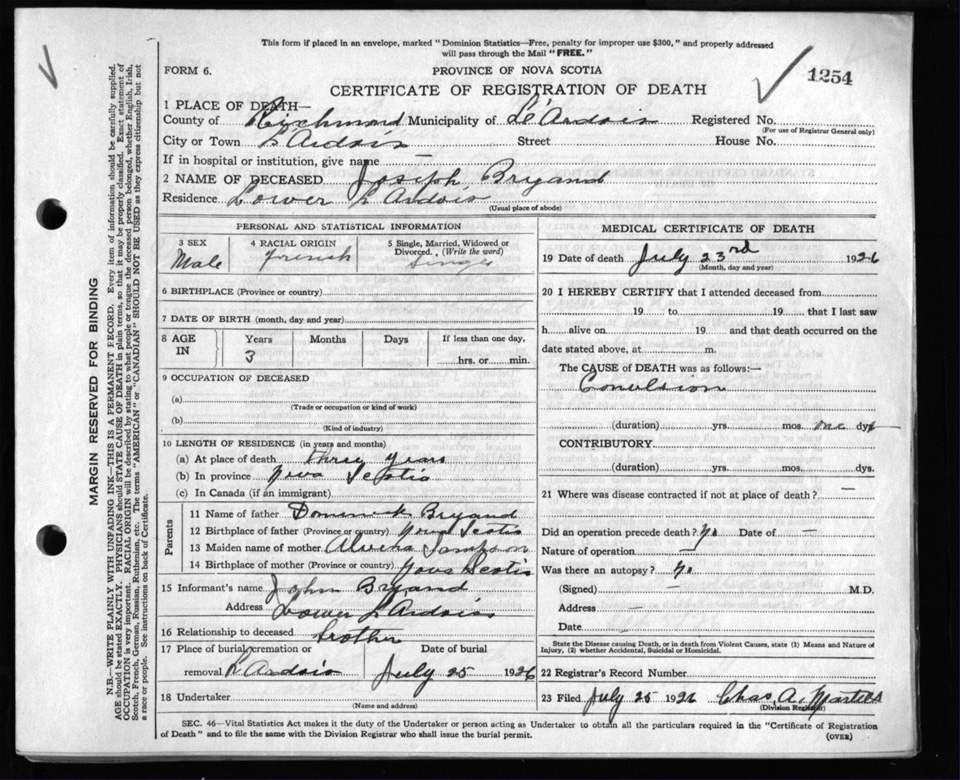 This form if placed in an envelope, marked "Dominion Statistics—Free, penalty for improper use $300," and properly addressed
will pass through the Mail "FREE."
FORM 6.
PROVINCE OF NOVA SCOTIA
1254
CERTIFICATE OF REGISTRATION OF DEATH
1 PLACE OF DEATH—
County of Richmond Municipality of L'Ardois Registered No.
(For use of Registrar General only)
City or Town L'Ardois Street House No.
If in hospital or institution, give name —
2 NAME OF DECEASED Joseph Bryand
Residence Lower L'Ardois
(Usual place of abode)
PERSONAL AND STATISTICAL INFORMATION
3 SEX
Male
4 RACIAL ORIGIN
French
5 Single, Married, Widowed or
Divorced. (Write the word)
Single
6 BIRTHPLACE (Province or country)
7 DATE OF BIRTH (month, day and year)
8 AGE
IN
Years Months Days If less than one day,
3 hrs. or min.
9 OCCUPATION OF DECEASED
(a)
(Trade or occupation or kind of work)
(b)
(Kind of industry)
10 LENGTH OF RESIDENCE (in years and months)
(a) At place of death three years
(b) In province Nova Scotia
(c) In Canada (if an immigrant)
Parents
11 Name of father Dominick Bryand
12 Birthplace of father (Province or country) Nova Scotia
13 Maiden name of mother Sampson
14 Birthplace of mother (Province or country) Nova Scotia
15 Informant's name John Bryand
Address Lower L'Ardois
16 Relationship to deceased brother
17 Place of burial, cremation or Date of burial
removal L'Ardois July 25 1926
18 Undertaker
(Name and address)
MEDICAL CERTIFICATE OF DEATH
19 Date of death July 23rd 1926
(Month, day and year)
20 I HEREBY CERTIFY that I attended deceased from
19 to 19 that I last saw
h alive on 19 and that death occurred on
date stated above, at m.
The CAUSE of DEATH was as follows:—
Conulsion
(duration) yrs. mos. one dys
CONTRIBUTORY
(duration) yrs. mos. dys.
21 Where was disease contracted if not at place of death? —
Did an operation precede death? No Date of —
Nature of operation —
Was there an autopsy? No
(Signed) — M.D.
Address —
Date
State the Disease causing Death, or in death from Violent Causes, state (1) Means and Nature of
Injury, (2) whether Accidental, Suicidal or Homicidal.
22 Registrar's Record Number
23 Filed July 25 1926 Chas. A. Martell
(Division Registrar)
SEC. 46—Vital Statistics Act makes it the duty of the Undertaker or person acting as Undertaker to obtain all the particulars required in the "Certificate of Registration
of Death" and to file the same with the Division Registrar who shall issue the burial permit.
(OVER)
MARGIN RESERVED FOR BINDING
N.B.—WRITE PLAINLY WITH UNFADING INK—THIS IS A PERMANENT RECORD. Every item of information should be carefully supplied.
AGE should be stated EXACTLY. PHYSICIANS should STATE CAUSE OF DEATH in plain terms, so that it may be properly classified. Exact statement of
OCCUPATION is very important. RACIAL ORIGIN will be described by stating to what people or tongue the deceased person belonged, whether English, Irish,
Scotch, French, German, Russian, Ruthenian, etc. The terms "AMERICAN" or "CANADIAN" SHOULD NOT BE USED as they express citizenship but not
a race or people. See instructions on back of Certificate.